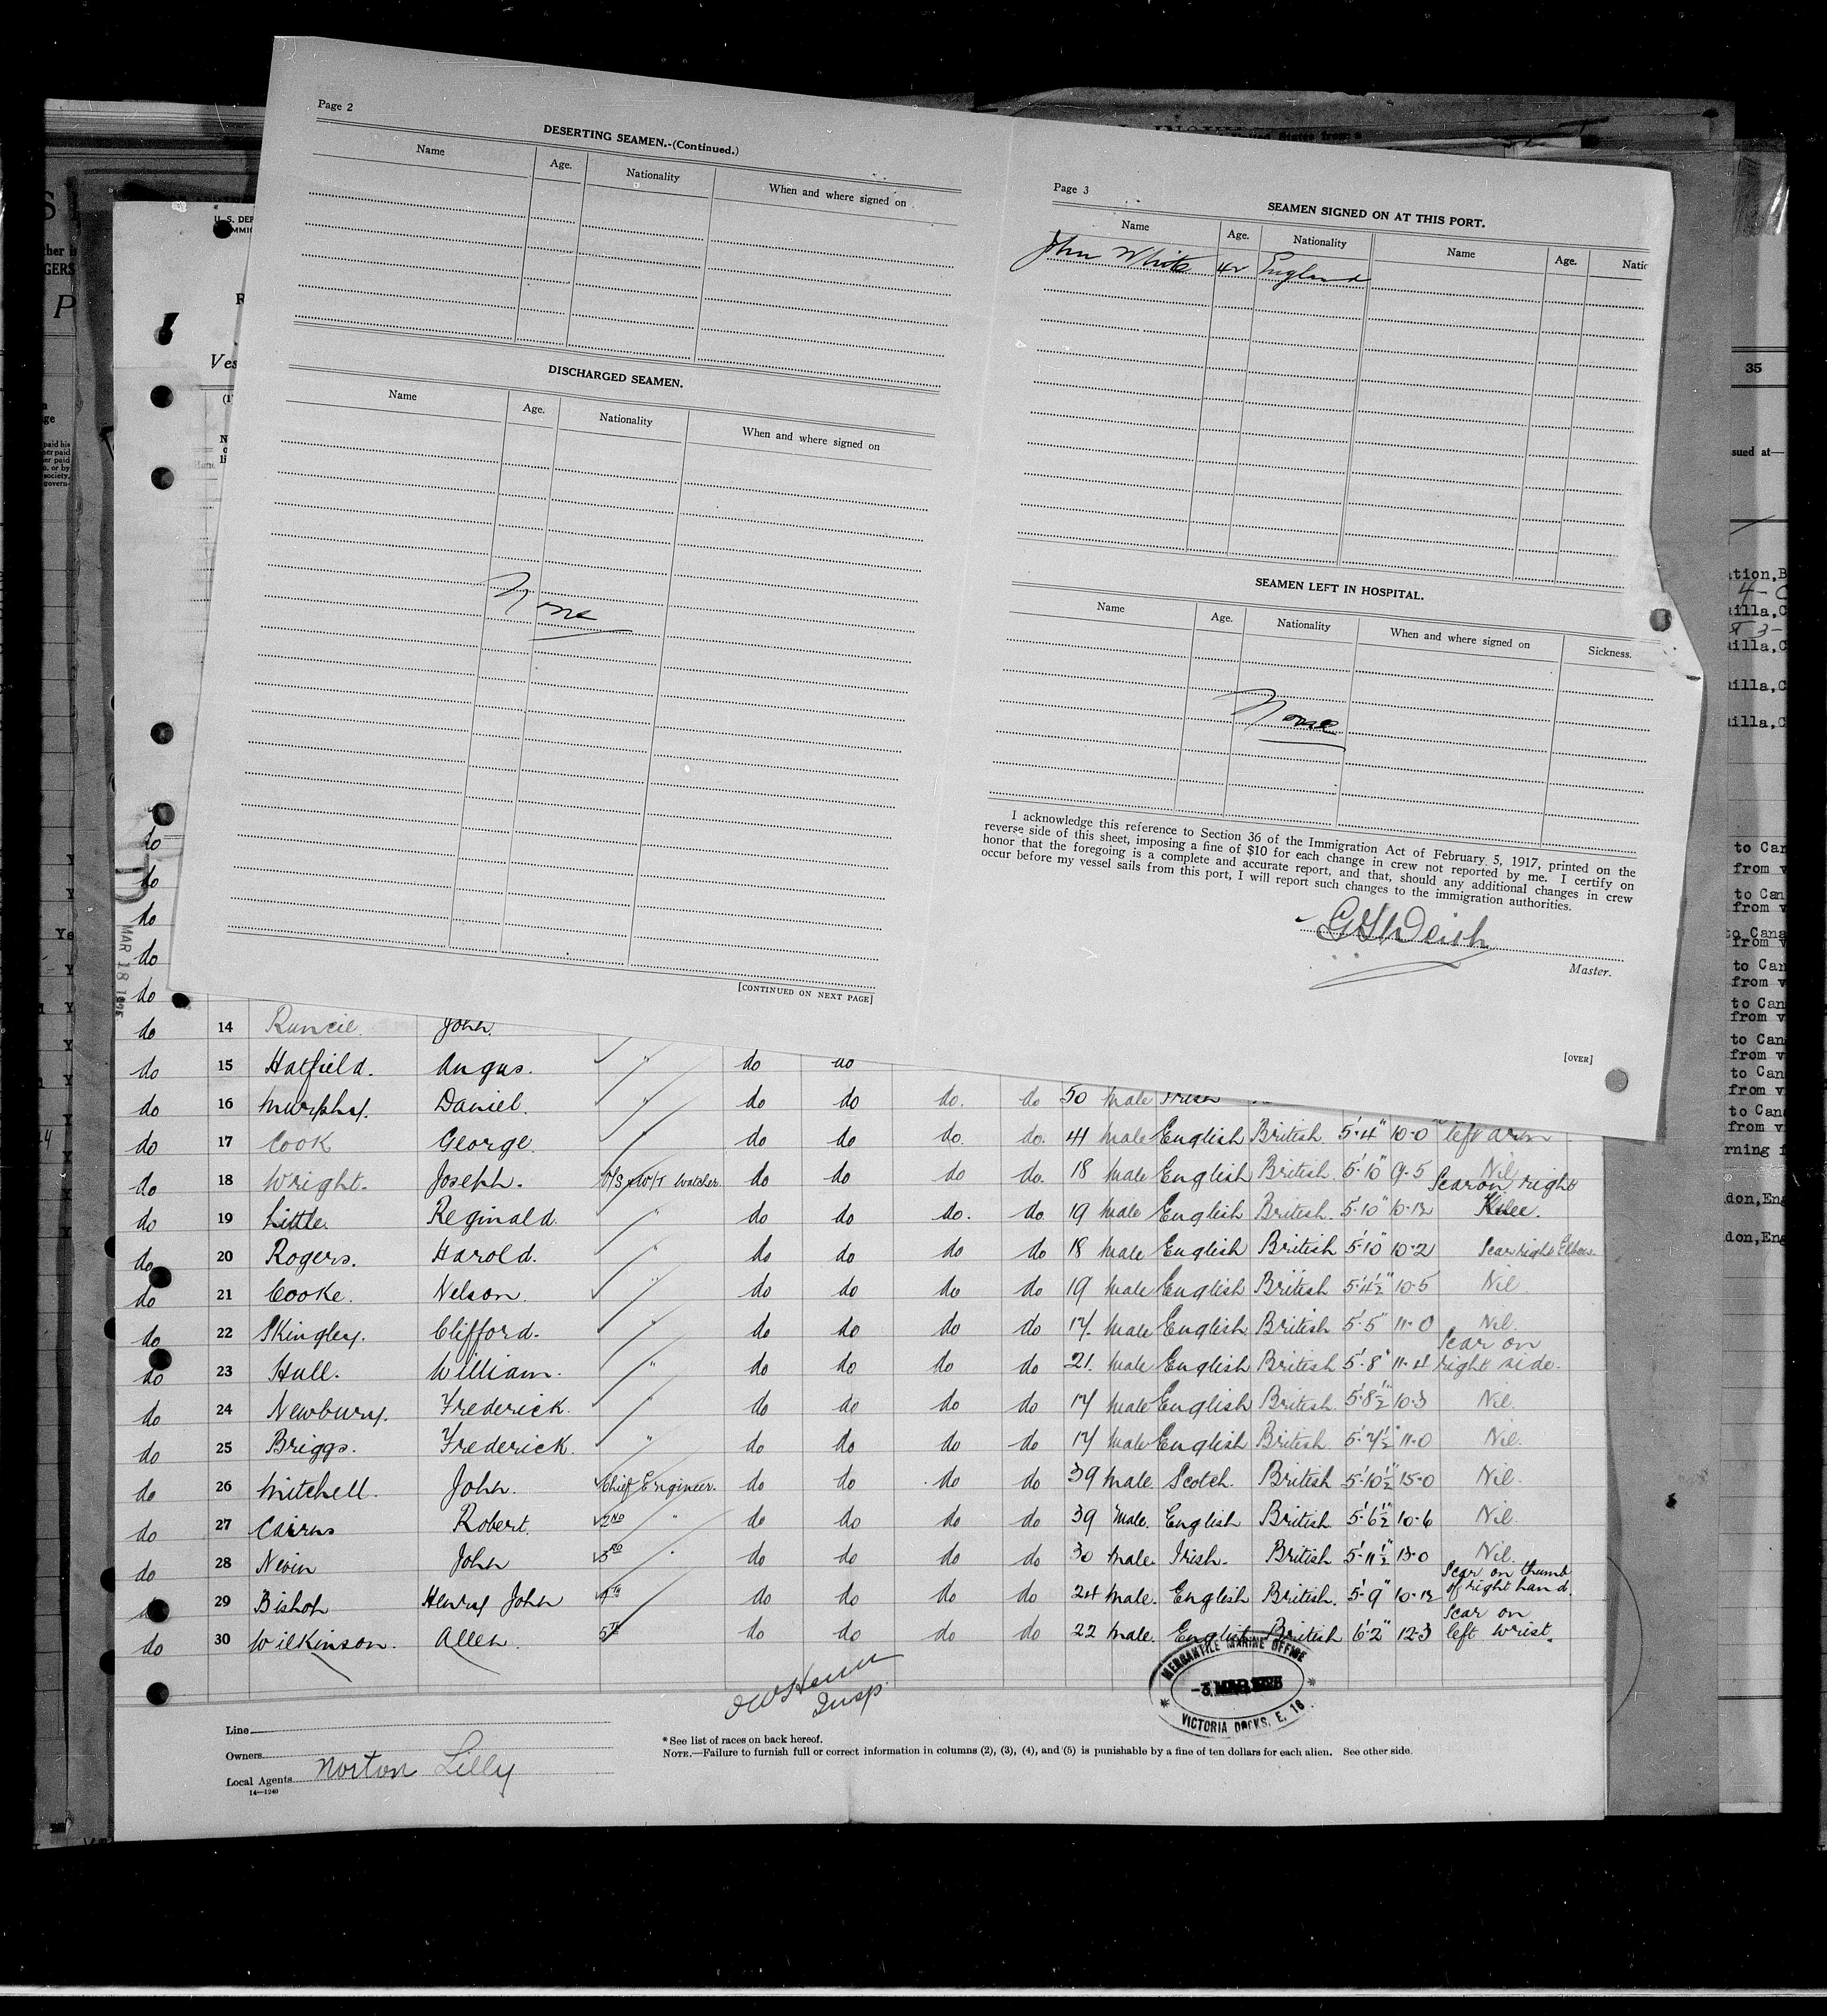 Page 2
DESERTING SEAMEN.-(Continued.)
Name Age. Nationality When and where signed on
DISCHARGED SEAMEN.
Name Age. Nationality When and where signed on
None
[CONTINUED ON NEXT PAGE]
Page 3
SEAMEN SIGNED ON AT THIS PORT.
Name Age. Nationality Name Age. Natic
John White 42 England
SEAMEN LEFT IN HOSPITAL.
Name Age. Nationality When and where signed on Sickness.
None
I acknowledge this reference to Section 36 of the Immigration Act of February 5, 1917, printed on the
reverse side of this sheet, imposing a fine of $10 for each change in crew not reported by me. I certify on
honor that the foregoing is a complete and accurate report, and that, should any additional changes in crew
occur before my vessel sails from this port, I will report such changes to the immigration authorities.
Master.
[OVER]
U. S. DEP
Ves
35
sued at—
MAR 18
do
do
do
do
do
do 14 Runcie. John.
do 15 Hatfield. Angus. " do do
do 16 Murphy. Daniel. " do do do. do 50 male Irish
do 17 Cook George. " do do do. do. 41 male English British 5'-4" 10-0 left arm
do 18 Wright. Joseph. O/S & W/T Watcher do do do do. 18 male English British. 5'-10" 9-5 Nil
do 19 Little. Reginald. " do do do. do. 19 male English British. 5'-10" 10-12 Scar on right Knee.
do 20 Rogers. Harold. " do do do do 18 male English British 5'-10" 10-2 Scar right Elbow
do 21 Cooke. Nelson. " do do do do 19 male English British 5'-4½" 10-5 Nil.
do 22 Skingley. Clifford. " do do do do 17. male English British 5'-5" 11-0 Nil.
do 23 Hull. William. " do do do do 21. male English British 5'-8" 11-4 Scar on right side.
do 24 Newbury. Frederick. " do do do do 17 male English British. 5'-8½" 10-3 Nil.
do 25 Briggs. Frederick. " do do do do 17 male English British. 5'-7½" 11-0 Nil.
do 26 Mitchell. John. Chief Engineer. do do do do 39 male. Scotch. British 5'-10½" 15-0 Nil.
do 27 Cairns Robert. 2ND " do do do do 39 male. English British. 5'-6½" 10-6 Nil.
do 28 Nevin John 3RD " do do do do 30 male. Irish. British 5'-11½" 13-0 Nil.
do 29 Bishop Henry John 4TH do do do do 24 male. English British. 5'-9" 10-12 Scar on thumb of right hand.
do 30 Wilkinson. Allen. 5TH do do do do 22 male. English British 6'-2" 12-3 Scar on left wrist.
Insp.
MERCANTILE MARINE OFFICE
-3 MAR
VICTORIA DOCKS, E. 16
Line
Owners
Local Agents Norton Lilly
14—1240
*See list of races on back hereof.
NOTE.—Failure to furnish full or correct information in columns (2), (3), (4), and (5) is punishable by a fine of ten dollars for each alien. See other side.